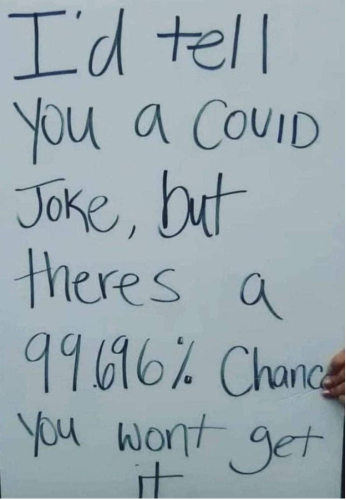 I'd tell
you a COVID
Joke, but
theres a
99.696% Chance
you wont get
it